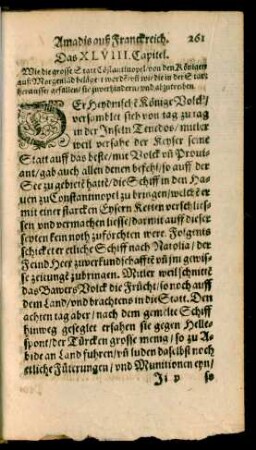 Amadis auß Franckreich. 261
Das XLVIII. Capitel.
Wie die grosse Statt Cõstantinopel / von den Königen
auß Morgenlãd belägert werdẽ / vñ wie die in der Statt
heraußer gefallen / sie zuverhindern / und abzutreiben.
DEr Heydnischẽ Könige Volck /
versamblet sich von tag zu tag
in der Inseln Tenedos / mitler
weil versahe der Keyser seine
Statt auff das beste / mit Volck vñ Proui-
ant / gab auch allen denen befehl / so auff der
See zugebietẽ hattẽ / die Schiff in den Ha-
uen zu Constantinopel zu bringen / welchẽ er
mit einer starcken Eysern Ketten verschlies-
sen und vermachen liesse / darmit auff dieser
seyten kein noth zuförchten were. Folgents
schicket er etliche Schiff nach Natolia / der
Feind Heer zuverkundschafftẽ vñ jm gewis-
se zeitungẽ zubringen. Mitler weil schnittẽ
das Bawers Volck die Frücht / so noch auff
dem Land / vnd brachtens in die Statt. Den
achten tag aber / nach dem gemelte Schiff
hinweg gesegelt ersahen sie gegen Helle-
spont / der Türcken grosse menig / so zu A-
bide an Land fuhren / vñ luden daselbst noch
etliche Füterungen / vnd Munitionen eyn /
so